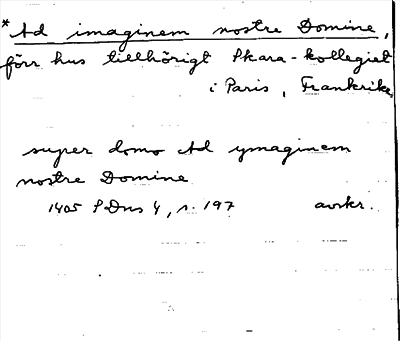 *Ad imaginem nostre Domine,
förr hus tillhörigt Skara-kollegiet
i Paris, Frankrike.
super domo Ad ymaginem
nostre Domine
1405 SDns 4, s. 197 avskr.